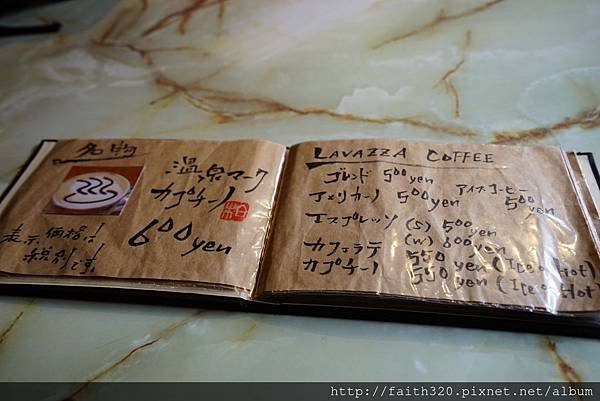 名物
温泉マーク
カプチーノ
600yen
表示価格は
税別です。
LAVAZZA COFFEE
ブレンド 500yen
アメリカーノ 500yen
アイスコーヒー
500yen
エスプレッソ (S) 500yen
(W) 600yen
カフェラテ 550yen (Ice o Hot)
カプチーノ 550yen (Ice o Hot)
http://faith320.pixnet.net/album